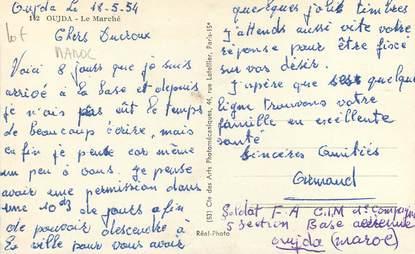 Oujda Le 18-5.54
142 OUJDA - Le Marché
lot
MAROC
Chers Ducroux
Voici 8 jours que je suis
arrivé à la base et depuis
je n'ais pas eût le temps
de beaucoup écrire, mais
enfin je pense car même
un peu à vous. je pense
avoir une permission dans
une 10de de jours afin
de pouvoir descendre à
la ville pour vous avoir
(53) Cie des Arts Photomécaniques, 44, rue Letellier, Paris-15e
Réel-Photo
quelques jolis timbres
J'attends aussi vite votre
réponse pour être fixé
sur vos désir.
J'espère que ses quelque
ligne trouvons votre
famille en excellente
santé
Sincères Amitiés
Armand
Soldat F-A C.I.M 1re Compagnie
5 section Base aérienne
oujda (maroc)